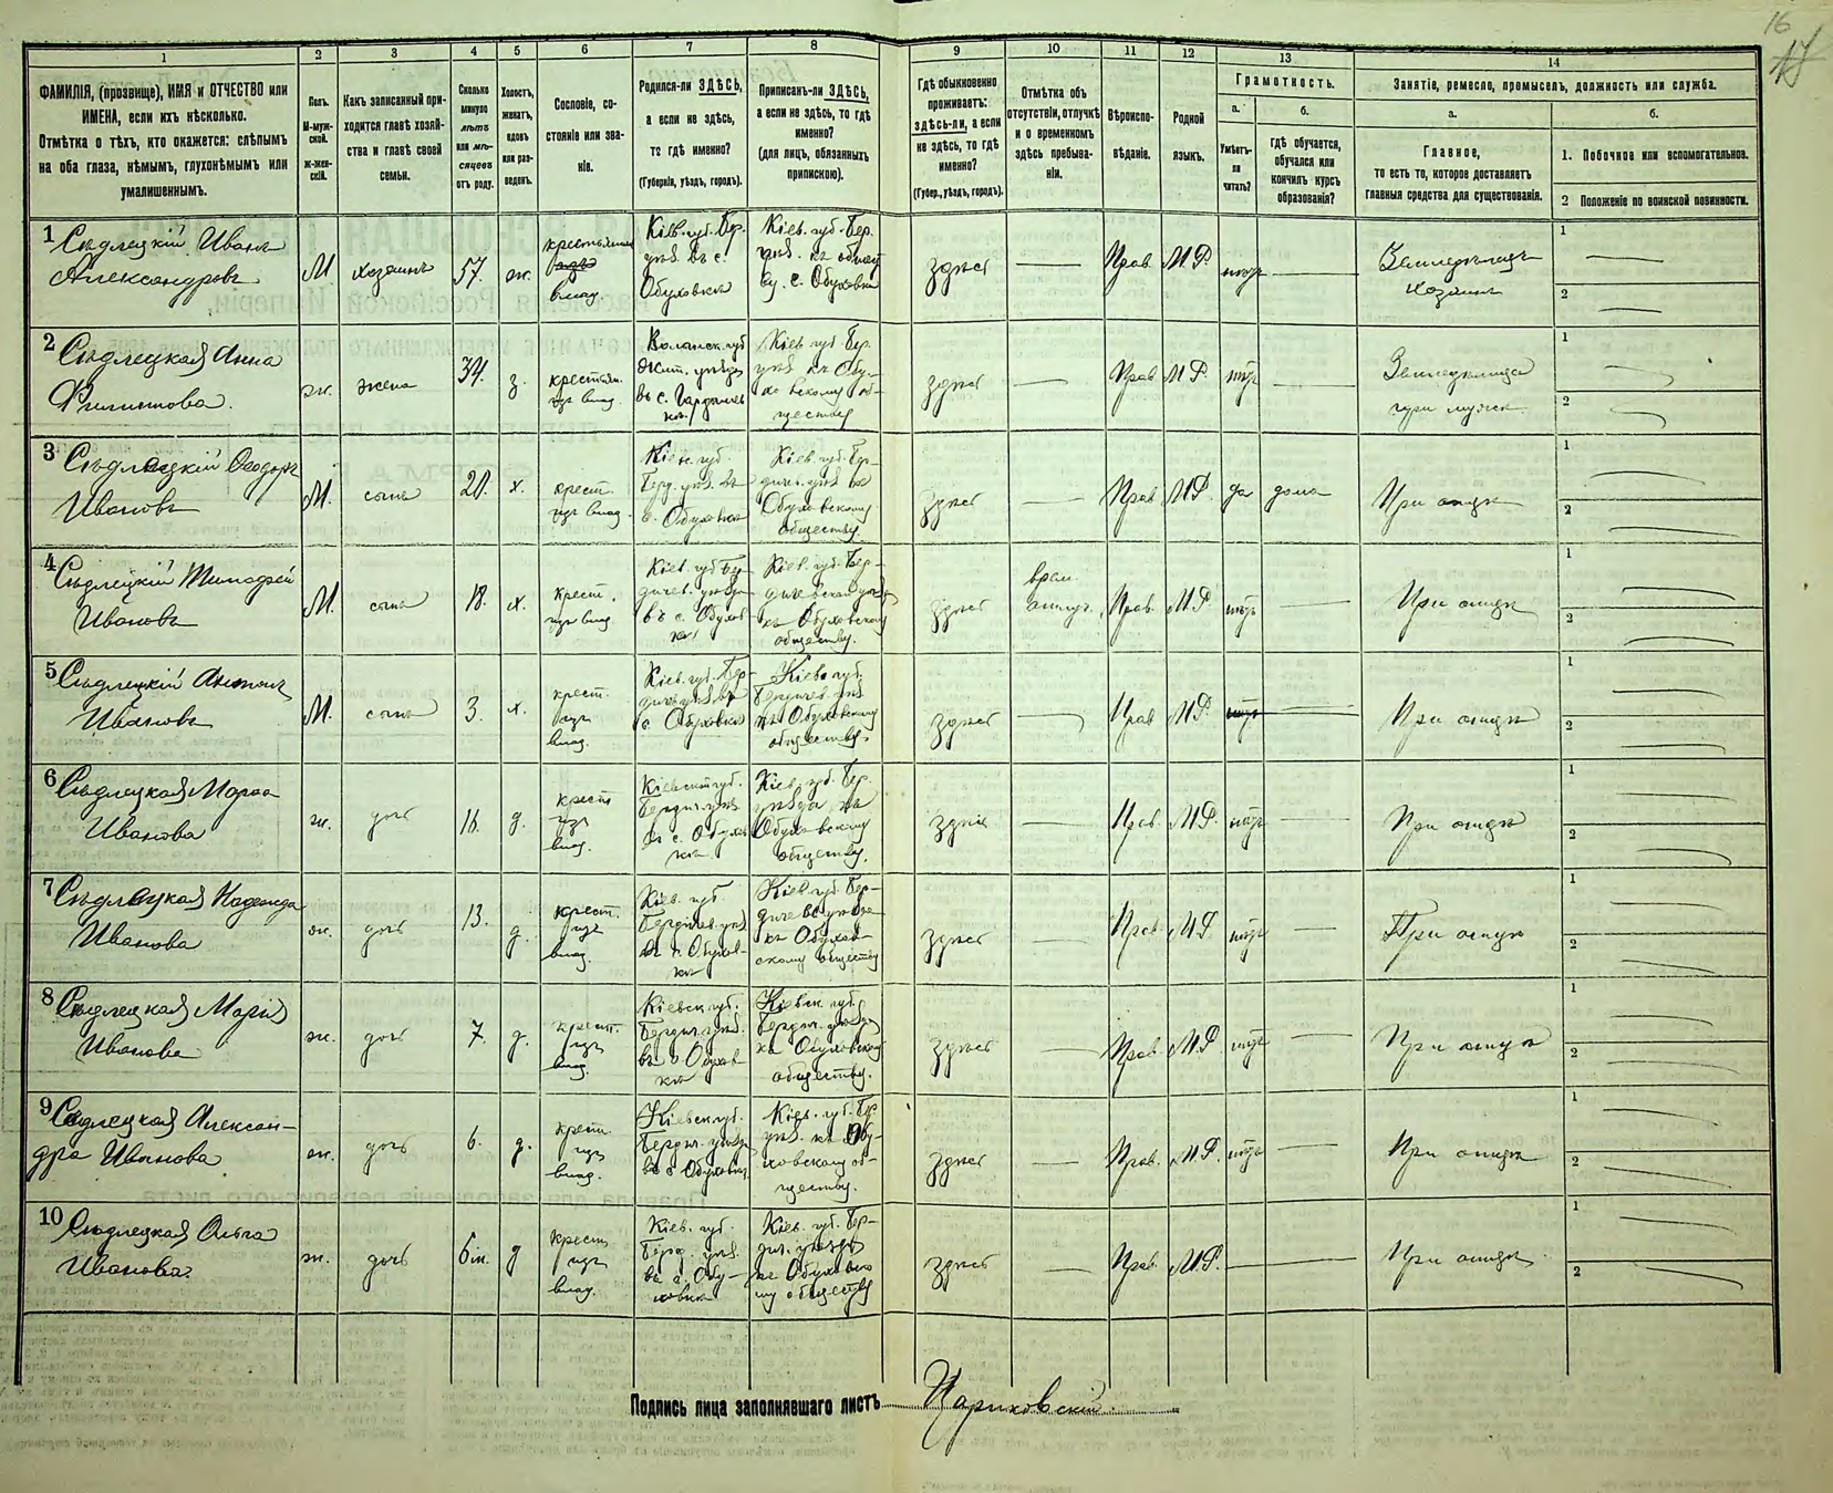 16
17
1
2
3
4
5
6
7
8
9
10
11
12
13
14
ФАМИЛІЯ, (прозвище), ИМЯ и ОТЧЕСТВО или
ИМЕНА, если ихъ нѣсколько.
Отмѣтка о тѣхъ, кто окажется: слѣпымъ
на оба глаза, нѣмымъ, глухонѣмымъ или
умалишеннымъ.
Полъ.
М-муж-
ской.
Ж-жен-
скій.
Какъ записанный при-
ходится главѣ хозяй-
ства и главѣ своей
семьи.
Сколько
минуло
лѣтъ
или мѣ-
сяцевъ
отъ роду.
Холостъ,
женатъ,
вдовъ
или раз-
веденъ.
Сословіе, со-
стояніе или зва-
ніе.
Родился-ли ЗДѢСЬ,
а если не здѣсь,
то гдѣ именно?
(Губернія, уѣздъ, городъ).
Приписанъ-ли ЗДѢСЬ,
а если не здѣсь, то гдѣ
именно?
(для лицъ, обязанныхъ
припискою).
Гдѣ обыкновенно
проживаетъ:
здѣсь-ли, а если
не здѣсь, то гдѣ
именно?
(Губер., уѣздъ, городъ).
Отмѣтка объ
отсутствіи, отлучкѣ
и о временномъ
здѣсь пребыва-
ніи.
Вѣроиспо-
вѣданіе.
Родной
языкъ.
Грамотность.
а.
б.
Умѣетъ-
ли
читать?
гдѣ обучается,
обучался или
кончилъ курсъ
образованія?
Занятіе, ремесло, промыселъ, должность или служба.
а.
б.
Главное,
то есть то, которое доставляетъ
главныя средства для существованія.
1. Побочное или вспомогательное.
2 Положеніе по воинской повинности.
1 Сѣдлецкій Иванъ
Александровъ
М
хозяинъ
57.
ж.
крестьянинъ
влад.
Кіев. губ. Бер.
уѣз. въ с.
Обуховкѣ
Кіев. губ. Бер.
уѣз. къ общест
ву с. Обуховки
здѣсь
Прав.
М.Р.
нѣтъ
Земледѣлецъ
хозяинъ
1
2
2 Сѣдлецкая Анна
Филиповa.
ж.
жена
34.
з.
крестьян.
изъ влад.
Волынск. губ
Жит. уѣзда
въ с.
Кіев. губ. Бер.
уѣз. къ Обу-
ховскому об-
ществу
здѣсь
Прав
М.Р.
нѣтъ
Земледѣлица
при мужѣ
1
2
3 Сѣдлецкій Ѳеодоръ
Ивановъ
М.
сынъ
20.
х.
крест.
изъ влад.
Кіев. губ.
Берд. уѣз. въ
с. Обуховкѣ
Кіев. губ. Бер-
дич. уѣз. къ
Обуховскому
обществу
здѣсь
Прав
М.Р.
да
дома
При отцѣ
1
2
4 Сѣдлецкій Тимофей
Ивановъ
М.
сынъ
18.
х.
крест.
изъ влад
Кіев. губ Бер-
дичев. уѣзд.
въ с. Обухов
кѣ
Кіев. губ. Бер-
дичевскаго уѣзда
къ Обуховскому
обществу.
здѣсь
врем.
отлуч.
Прав.
М.Р.
нѣтъ
При отцѣ
1
2
5 Сѣдлецкій Антонъ
Ивановъ
М.
сынъ
3.
х.
крест.
изъ
влад.
Кіев. губ. Бер-
дичев. уѣз. въ
с. Обуховкѣ
Кіев. губ.
Бердичев. уѣз.
къ Обуховскому
обществу.
здѣсь
Прав
М.Р.
При отцѣ
1
2
6 Сѣдлецкая Марѳа
Иванова
ж.
дочь
16.
д.
крест
изъ
влад.
Кіевск. губ.
Бердич. уѣз.
въ с. Обухов
кѣ
Кіев. губ. Бер.
уѣзда къ
Обуховскому
обществу.
здѣсь
Прав.
М.Р.
нѣтъ
При отцѣ
1
2
7 Сѣдлецкая Надежда
Иванова
ж.
дочь
13.
д.
крест.
изъ
влад.
Кіев. губ
Бердичев. уѣз.
въ с. Обухов-
кѣ
Кіев. губ. Бер-
дичевс. уѣзда
къ Обухов-
скому обществу
здѣсь
Прав
М.Р.
нѣтъ
При отцѣ
1
2
8 Сѣдлецкая Марія
Иванова
ж.
дочь
7.
д.
крест.
изъ
влад.
Кіевск. губ.
Бердич. уѣз.
въ с. Обухов-
кѣ
Кіевск. губ.
Бердич. уѣзда
къ Обуховском
обществу.
здѣсь
Прав
М.Р.
нѣтъ
При отцѣ
1
2
9 Сѣдлецкая Александ-
дра Иванова
ж.
дочь
6.
д.
крест.
изъ
влад.
Кіевск. губ.
Бердич. уѣзд.
въ с Обуховкѣ
Кіев. губ. Бер
уѣз. къ Обу-
ховскому об-
ществу.
здѣсь
Прав.
М.Р.
нѣтъ
При отцѣ
1
2
10 Сѣдлецкая Ольга
Иванова.
ж.
дочь
6 м.
д
крест
изъ
влад.
Кіев. губ.
Берд. уѣз.
въ с. Обу-
ховкѣ
Кіев. губ. Бер-
дич. уѣзда
къ Обуховско
му обществу
здѣсь
Прав.
М.Р.
При отцѣ
1
2
Подпись лица заполнявшаго листъ